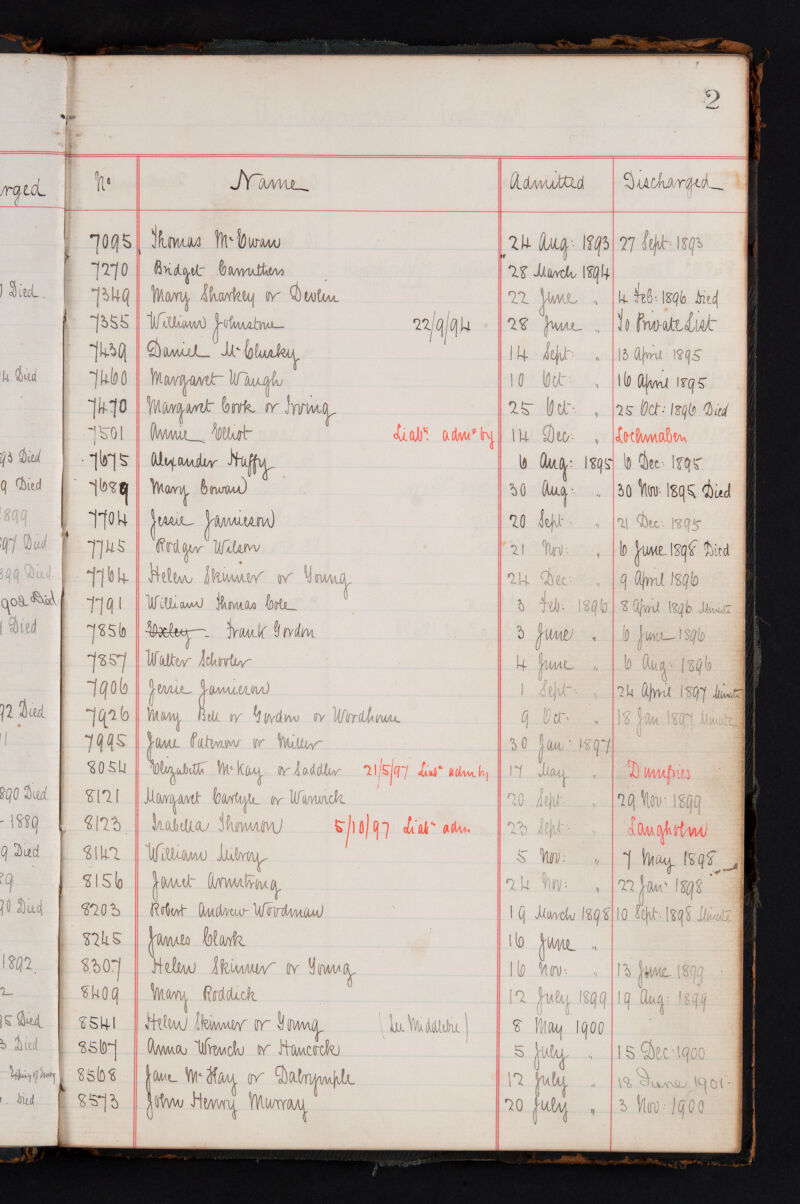 2
No Name Admitted Discharged
7095 Thomas McEwan 24 Aug: 1893 27 Sept: 1893
7270 Bridget Carruthers 28 March 1894
7349 Mary Sharkey or Devlin 22 June " 14 Feb: 1896 Died
7355 William Johnstone 22/9/94 28 June " To Private List
7439 Daniel McCluskey 14 Sept: " 13 April 1895
7460 Margaret Waugh 10 Oct: " 16 April 1895
7470 Margaret Cork or Irving 25 Oct: " 25 Oct: 1896 Died
7501 Annie Elliot Liaby admd by 14 Dec: " Lochmaben
7675 Alexander Huffy 6 Aug: 1895 6 Dec: 1895
7689 Mary Cowan 30 Aug: " 30 Nov: 1895 Died
7704 Jessie Jamieson 20 Sept: " 21 Dec: 1895
7745 Rodger Wilson 21 Nov: " 6 June 1898 Died
7764 Helen Skinner or Young 24 Dec: " 9 April 1896
7791 William Thomas Cole 3 Feb: 1896 8 April 1896 Minute
7856 Frank Gordon 3 June " 6 June 1896
7857 Walter Schooler 4 June " 6 Aug: 1896
7906 Jessie Jamieson 1 Sept: " 24 April 1897 Minute
7926 Mary Bell or Gordon or Woodhouse 9 Oct: " 18 Jan 1897 Minute
7995 Jane Paterson or Miller 30 Jan: 1897
8054 Elizabeth McKay or Saddler 21/5/97 Liaby adm by 17 May " Dumfries
8121 Margaret Carlyle or Warwick 20 Sept " 29 Nov: 1899
8123 Isabella Thomson 5/10/97 Liaby adm 23 Sept: " Langholm
8142 William Milroy 5 Nov: " 7 May 1898
8156 Janet Armstrong 24 Nov: " 22 Jany 1898
8203 Robert Andrew Woodman 19 March 1898 10 Sept: 1898 Minute
8245 James Clark 16 June "
8307 Helen Skinner or Young 16 Nov: " 13 June 1899
8409 Mary Roddick 12 July 1899 19 Aug: 1899
8541 Helen Skinner or Young (See Middlebie) 8 May 1900
8567 Anna Wrench or Hancock 5 July " 15 Dec: 1900
8568 Jane McKay or Dalrymple 12 July " 18 June 1901
8573 John Henry Murray 20 July " 3 Nov: 1900